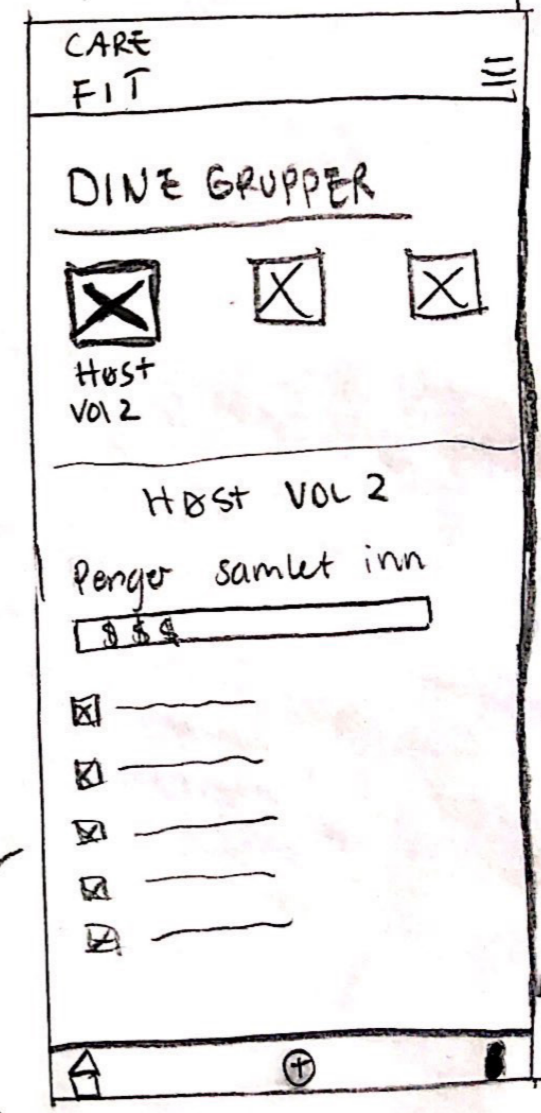 CARE
FIT
DINE GRUPPER
Høst
Vol 2
HØST VOL 2
Penger samlet inn
$ $ $